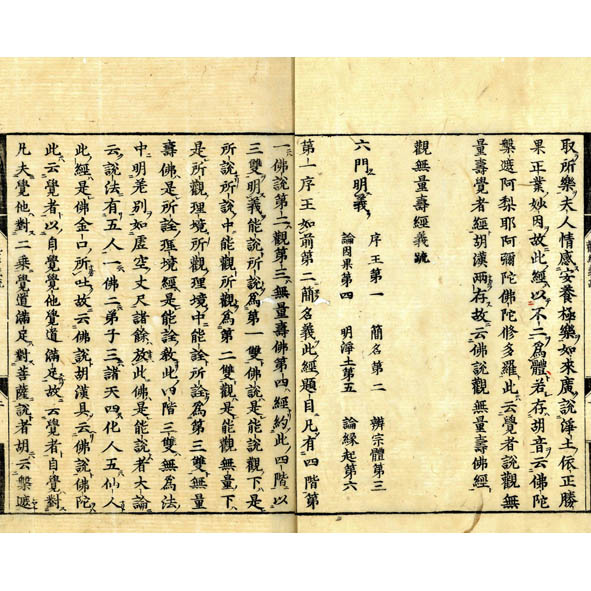 取所樂夫人情感安養極樂如來廣說淨土依正勝
果正業妙因故此經以不二為體若存胡音云佛陀
槃遮阿梨耶阿彌陀佛陀修多羅此云覺者說觀無
量壽覺者經胡漢兩存故云佛說觀無量壽佛經
觀無量壽經義疏
六門明義
序王第一 簡名第二 辨宗體第三
論因果第四 明淨土第五 論緣起第六
第一序王如前第二簡名義此經題目凡有四階第
一佛說第二觀第三無量壽佛第四經約此四階以
三雙明義能說所說為第一雙佛說是能說觀下是
所說所說中能觀所觀為第二雙觀是能觀無量下
是所觀理境所觀理境中能詮所詮為第三雙無量
壽佛是所詮理境經是能詮教此四階三雙無為法
中明差別如虛空丈尺諸餘放此佛是能說者大論
云說法有五人一佛二弟子三諸天四化人五仙人
此經是佛金口所吐故云佛說胡漢具云佛說佛陀
此云覺者以自覺覺他覺道滿足故云覺者自覺對
凡夫覺他對二乘覺道滿足對菩薩說者胡云槃遮